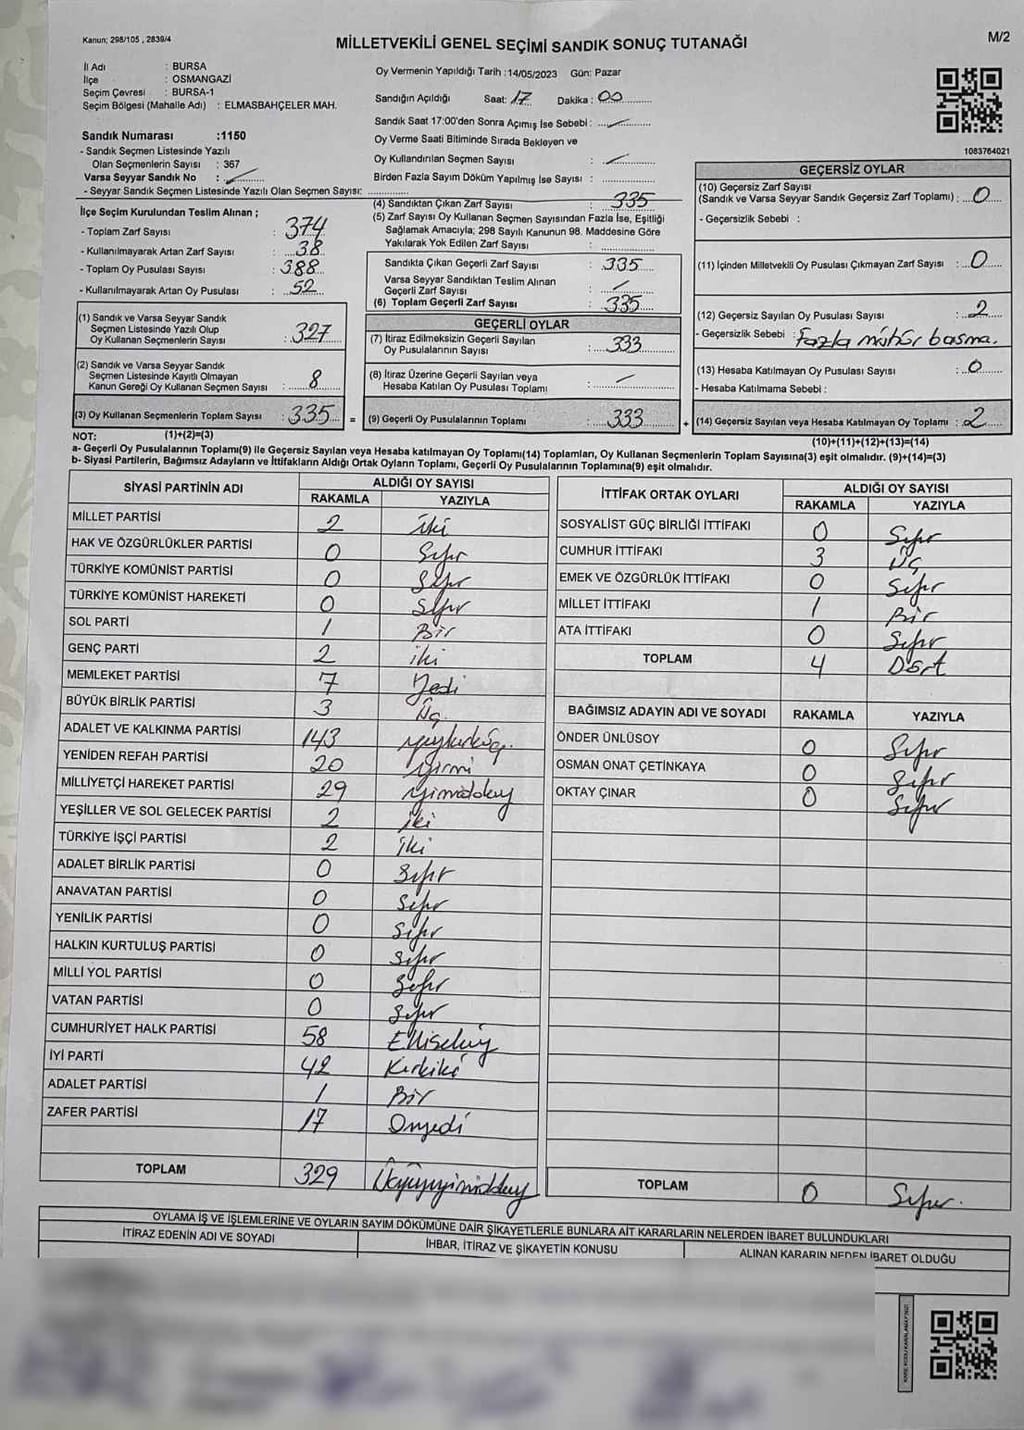 Kanun; 298/105 , 2839/4
M/2
MİLLETVEKİLİ GENEL SEÇİMİ SANDIK SONUÇ TUTANAĞI
İl Adı : BURSA
İlçe : OSMANGAZİ
Seçim Çevresi : BURSA-1
Seçim Bölgesi (Mahalle Adı) : ELMASBAHÇELER MAH.
Sandık Numarası :1150
- Sandık Seçmen Listesinde Yazılı
Olan Seçmenlerin Sayısı : 367
Varsa Seyyar Sandık No :
- Seyyar Sandık Seçmen Listesinde Yazılı Olan Seçmen Sayısı:
Oy Vermenin Yapıldığı Tarih :14/05/2023 Gün: Pazar
Sandığın Açıldığı Saat: 17 Dakika : 00
Sandık Saat 17:00'den Sonra Açımış İse Sebebi :
Oy Verme Saati Bitiminde Sırada Bekleyen ve
Oy Kullandırılan Seçmen Sayısı :
Birden Fazla Sayım Döküm Yapılmış İse Sayısı :
1083764021
İlçe Seçim Kurulundan Teslim Alınan ;
- Toplam Zarf Sayısı : 374
- Kullanılmayarak Artan Zarf Sayısı : 38
- Toplam Oy Pusulası Sayısı : 388
- Kullanılmayarak Artan Oy Pusulası : 52
(1) Sandık ve Varsa Seyyar Sandık
Seçmen Listesinde Yazılı Olup
Oy Kullanan Seçmenlerin Sayısı : 327
(2) Sandık ve Varsa Seyyar Sandık
Seçmen Listesinde Kayıtlı Olmayan
Kanun Gereği Oy Kullanan Seçmen Sayısı : 8
(3) Oy Kullanan Seçmenlerin Toplam Sayısı : 335 =
(4) Sandıktan Çıkan Zarf Sayısı : 335
(5) Zarf Sayısı Oy Kullanan Seçmen Sayısından Fazla İse, Eşitliği
Sağlamak Amacıyla; 298 Sayılı Kanunun 98. Maddesine Göre
Yakılarak Yok Edilen Zarf Sayısı :
Sandıkta Çıkan Geçerli Zarf Sayısı : 335
Varsa Seyyar Sandıktan Teslim Alınan
Geçerli Zarf Sayısı :
(6) Toplam Geçerli Zarf Sayısı : 335
GEÇERLİ OYLAR
(7) İtiraz Edilmeksizin Geçerli Sayılan
Oy Pusulalarının Sayısı : 333
(8) İtiraz Üzerine Geçerli Sayılan veya
Hesaba Katılan Oy Pusulası Toplamı :
(9) Geçerli Oy Pusulalarının Toplamı : 333 +
GEÇERSİZ OYLAR
(10) Geçersiz Zarf Sayısı
(Sandık ve Varsa Seyyar Sandık Geçersiz Zarf Toplamı) : 0
- Geçersizlik Sebebi :
(11) İçinden Milletvekili Oy Pusulası Çıkmayan Zarf Sayısı : 0
(12) Geçersiz Sayılan Oy Pusulası Sayısı : 2
- Geçersizlik Sebebi : Fazla mühür basma.
(13) Hesaba Katılmayan Oy Pusulası Sayısı : 0
- Hesaba Katılmama Sebebi :
(14) Geçersiz Sayılan veya Hesaba Katılmayan Oy Toplamı : 2
NOT: (1)+(2)=(3) (10)+(11)+(12)+(13)=(14)
a- Geçerli Oy Pusulalarının Toplamı(9) ile Geçersiz Sayılan veya Hesaba katılmayan Oy Toplamı(14) Toplamları, Oy Kullanan Seçmenlerin Toplam Sayısına(3) eşit olmalıdır. (9)+(14)=(3)
b- Siyasi Partilerin, Bağımsız Adayların ve İttifakların Aldığı Ortak Oyların Toplamı, Geçerli Oy Pusulalarının Toplamına(9) eşit olmalıdır.
SİYASİ PARTİNİN ADI ALDIĞI OY SAYISI
RAKAMLA YAZIYLA
MİLLET PARTİSİ 2 iki
HAK VE ÖZGÜRLÜKLER PARTİSİ 0 Sıfır
TÜRKİYE KOMÜNİST PARTİSİ 0 Sıfır
TÜRKİYE KOMÜNİST HAREKETİ 0 Sıfır
SOL PARTİ 1 Bir
GENÇ PARTİ 2 iki
MEMLEKET PARTİSİ 7 Yedi
BÜYÜK BİRLİK PARTİSİ 3 Üç
ADALET VE KALKINMA PARTİSİ 143 yüzkırküç.
YENİDEN REFAH PARTİSİ 20 yirmi
MİLLİYETÇİ HAREKET PARTİSİ 29 yirmidokuz
YEŞİLLER VE SOL GELECEK PARTİSİ 2 iki
TÜRKİYE İŞÇİ PARTİSİ 2 iki
ADALET BİRLİK PARTİSİ 0 Sıfır
ANAVATAN PARTİSİ 0 Sıfır
YENİLİK PARTİSİ 0 Sıfır
HALKIN KURTULUŞ PARTİSİ 0 Sıfır
MİLLİ YOL PARTİSİ 0 Sıfır
VATAN PARTİSİ 0 Sıfır
CUMHURİYET HALK PARTİSİ 58 Ellisekiz
İYİ PARTİ 42 Kırkiki
ADALET PARTİSİ 1 Bir
ZAFER PARTİSİ 17 Onyedi
TOPLAM 329 Üçyüzyirmidokuz
İTTİFAK ORTAK OYLARI ALDIĞI OY SAYISI
RAKAMLA YAZIYLA
SOSYALİST GÜÇ BİRLİĞİ İTTİFAKI 0 Sıfır
CUMHUR İTTİFAKI 3 Üç
EMEK VE ÖZGÜRLÜK İTTİFAKI 0 Sıfır
MİLLET İTTİFAKI 1 Bir
ATA İTTİFAKI 0 Sıfır
TOPLAM 4 Dört
BAĞIMSIZ ADAYIN ADI VE SOYADI RAKAMLA YAZIYLA
ÖNDER ÜNLÜSOY 0 Sıfır
OSMAN ONAT ÇETİNKAYA 0 Sıfır
OKTAY ÇINAR 0 Sıfır
TOPLAM 0 Sıfır.
OYLAMA İŞ VE İŞLEMLERİNE VE OYLARIN SAYIM DÖKÜMÜNE DAİR ŞİKAYETLERLE BUNLARA AİT KARARLARIN NELERDEN İBARET BULUNDUKLARI
İTİRAZ EDENİN ADI VE SOYADI İHBAR, İTİRAZ VE ŞİKAYETİN KONUSU ALINAN KARARIN NEDEN İBARET OLDUĞU